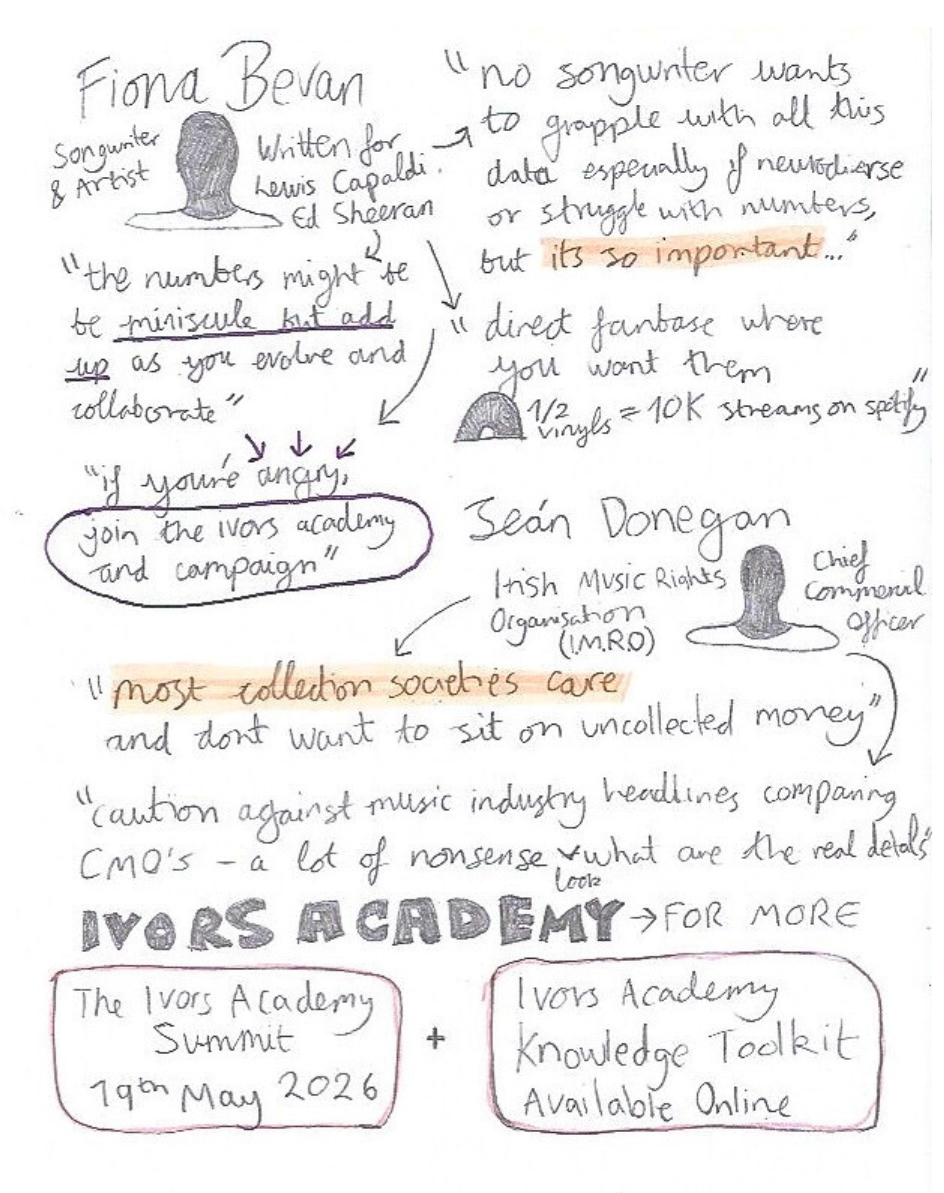 Fiona Bevan
Songwriter
& Artist
Written for
Lewis Capaldi.
Ed Sheeran
"no songwriter wants
to grapple with all this
data especially if neurodiverse
or struggle with numbers,
but its so important..."
"the numbers might be
be miniscule but add
up as you evolve and
collaborate"
"direct fanbase where
you want them
1/2 vinyls = 10K streams on spotify"
"if you're angry,
join the ivors academy
and campaign"
Seán Donegan
Irish Music Rights
Organisation
(I.M.R.O)
Chief
Commercial
Officer
"most collection societies care
and dont want to sit on uncollected money"
"caution against music industry headlines comparing
CMO's - a lot of nonsense look what are the real details"
IVORS ACADEMY → FOR MORE
The Ivors Academy
Summit
19th May 2026
+
Ivors Academy
Knowledge Toolkit
Available Online